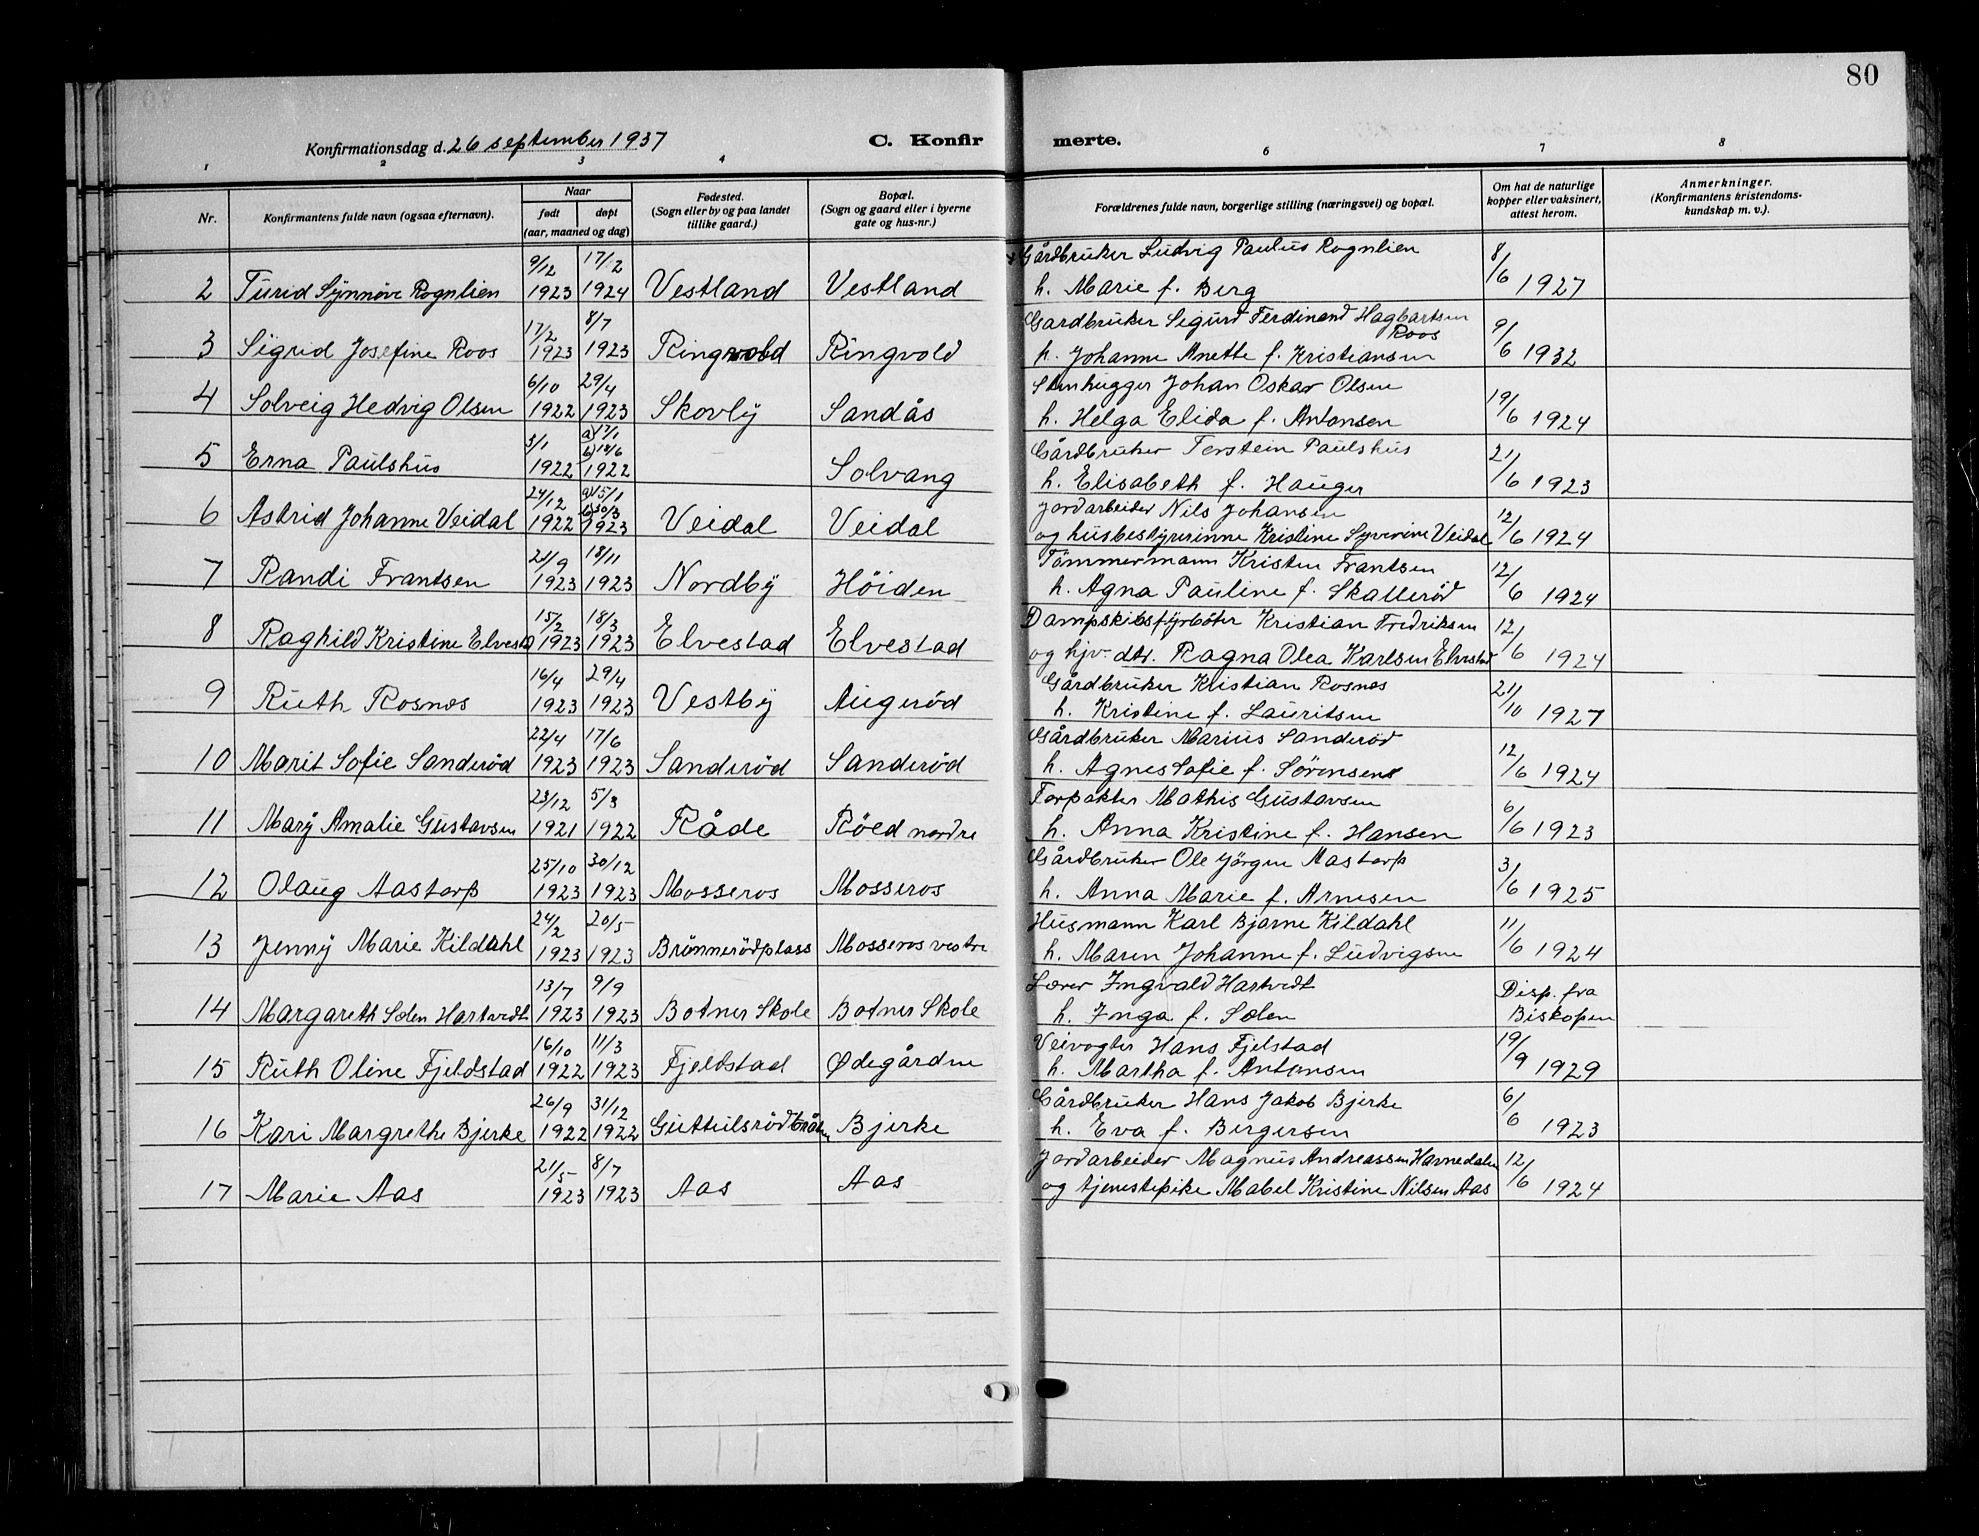 80
Konfirmationsdag d. 26 september 1937
C. Konfir
merte.
1 2 3 4 6 7 8
Nr.
Konfirmantens fulde navn (ogsaa efternavn).
Naar
født døpt
(aar, maaned og dag)
Fødested.
(Sogn eller by og paa landet
tillike gaard.)
Bopæl.
(Sogn og gaard eller i byerne
gate og hus-nr.)
Forældrenes fulde navn, borgerlige stilling (næringsvei) og bopæl.
Om hat de naturlige
kopper eller vaksinert,
attest herom.
Anmerkninger.
(Konfirmantens kristendoms-
kundskap m. v.).
9/12 17/2 Gårdbruker Ludvig Paulus Rognlien 8/6
2 Turid Synnöve Rognlien 1923 1924 Vestland Vestland h. Marie f. Berg 1927
17/2 8/7 Gardbruker Sigurd Ferdinand Hagbartsen Roos 9/6
3 Sigrid Josefine Roos 1923 1923 Ringvold Ringvold h. Johanne Anette f. Kristiansen 1932
6/10 29/4 Stenhugger Johan Oskar Olsen 19/6
4 Solveig Hedvig Olsen 1922 1923 Skovly Sandås h. Helga Elida f. Antonsen 1924
3/1 a) 17/1 b) 18/6 Gårdbruker Torstein Paulshus 21/6
5 Erna Paulshus 1922 1922 Solvang h. Elisabeth f. Hauger 1923
24/12 a) 15/1 b) 30/3 Jordarbeider Nils Johansen 12/6
6 Astrid Johanne Veidal 1922 1923 Veidal Veidal og husbestyrerinne Kristine Syverine Veidal 1924
21/9 18/11 Tömmermann Kristen Frantsen 12/6
7 Randi Frantsen 1923 1923 Nordby Höiden h. Agna Pauline f. Skalleröd 1924
15/2 18/3 Dampskibsfyrböter Kristian Fredriksen 12/6
8 Raghild Kristine Elvestad 1923 1923 Elvestad Elvestad og hjv. dtr. Ragna Olea Karlsen Elvestad 1924
16/4 29/4 Gårdbruker Kristian Rosnes 21/10
9 Ruth Rosnes 1923 1923 Vestby Augeröd h. Kristine f. Lauritsen 1927
22/4 17/6 Gårdbruker Marius Sanderöd 12/6
10 Marit Sofie Sanderöd 1923 1923 Sanderöd Sanderöd h. Agnes Sofie f. Sörensen 1924
23/12 5/3 Forpakter Mathis Gustavsen 6/6
11 Mary Amalie Gustavsen 1921 1922 Råde Röed nordre h. Anna Kristine f. Hansen 1923
25/10 30/12 Gårdbruker Ole Jörgen Aastorp 3/6
12 Olaug Aastorp 1923 1923 Mosseros Mosseros h. Anna Marie f. Arnesen 1925
24/2 20/5 Husmann Karl Bjarne Kildahl 11/6
13 Jenny Marie Kildahl 1923 1923 Brönnerödplass Mosseros vestre h. Maren Johanne f. Ludvigsen 1924
13/7 9/9 Lærer Ingvald Hartvedt Disp. fra
14 Margareth Solen Hartvedt 1923 1923 Botner Skole Botner Skole h. Inga f. Solen Biskopen
16/10 11/3 Veivogter Hans Fjelstad 19/9
15 Ruth Oline Fjeldstad 1922 1923 Fjeldstad Ødegården h. Martha f. Antonsen 1929
26/9 31/12 Gårdbruker Hans Jakob Bjerke 6/6
16 Kari Margrethe Bjerke 1922 1922 Guttulsrödbråten Bjerke h. Eva f. Bergersen 1923
21/5 8/7 Jordarbeider Magnus Andreassen Havnedalen 12/6
17 Marie Aas 1923 1923 Aas Aas og tjenestepike Mabel Kristine Nilsen Aas 1924